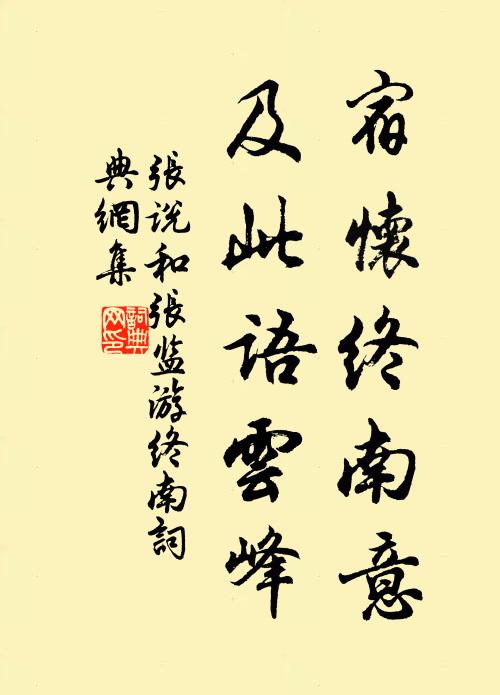 宿懷終南意
及此語雲峰
張説和張监游终南詞
典網集
詞典
网印